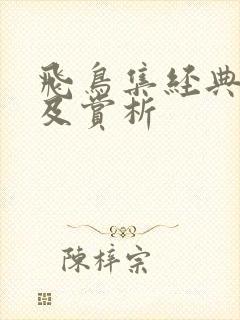 飛鳥集經典
及賞析
陳梓宗